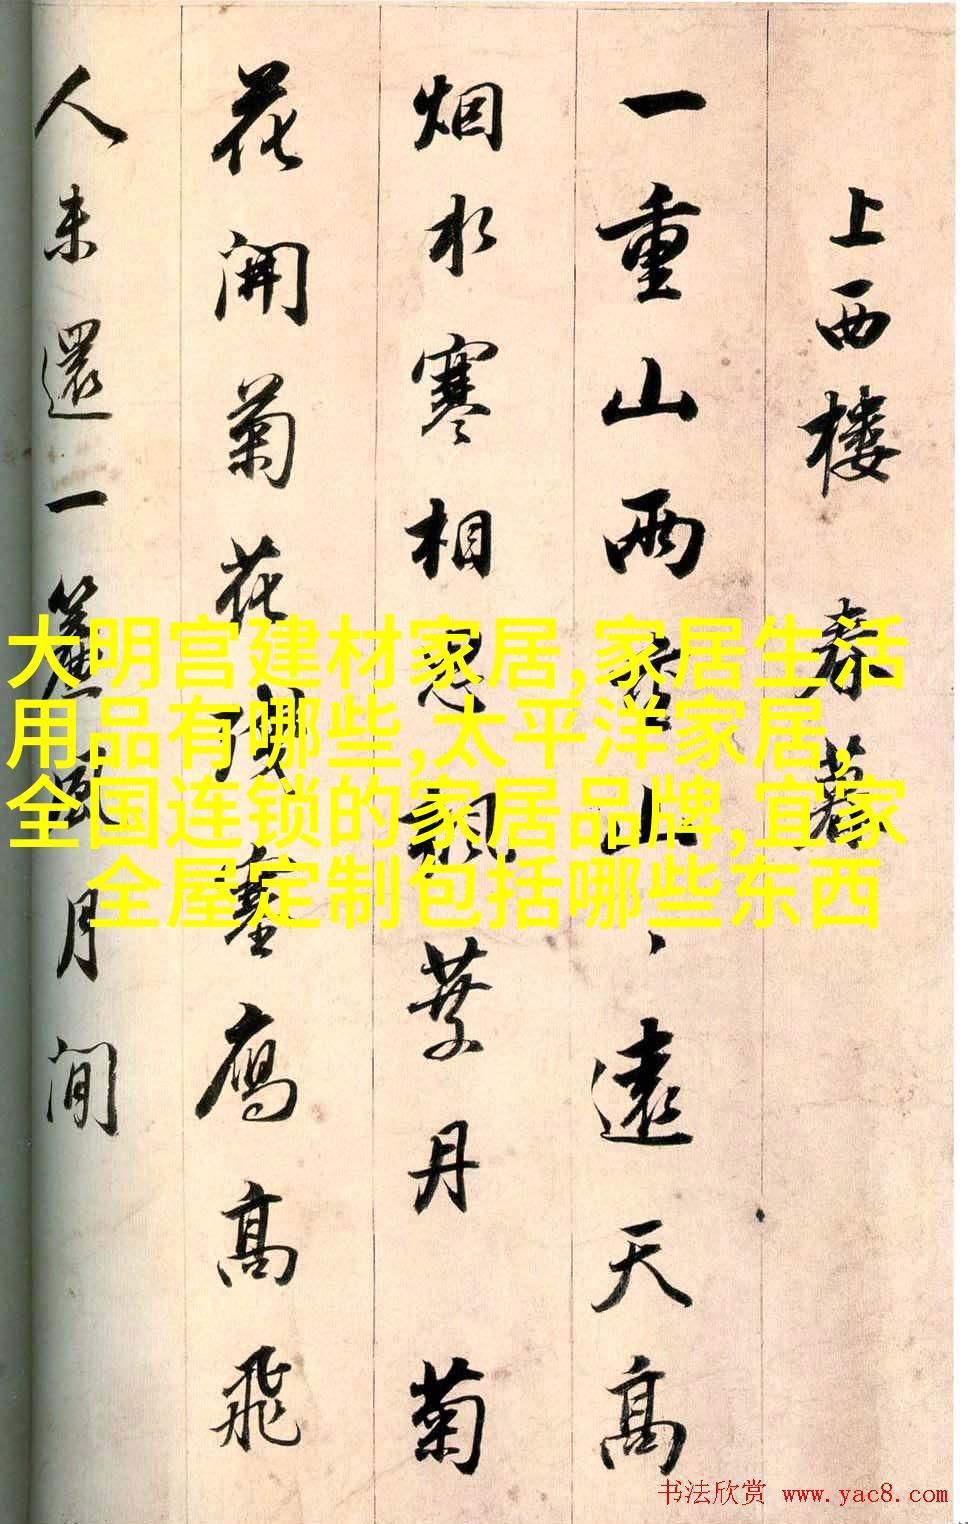 上西楼
一重山兩重山、遠天高
烟水寒相思楓葉丹菊
花開菊花残塞鴈高飛
人未還一簾風月閒
大明宫建材家居,家居生活
用品有哪些,太平洋家居,
全国连锁的家居品牌,宜家
全屋定制包括哪些东西
书法欣赏 www.yac8.com